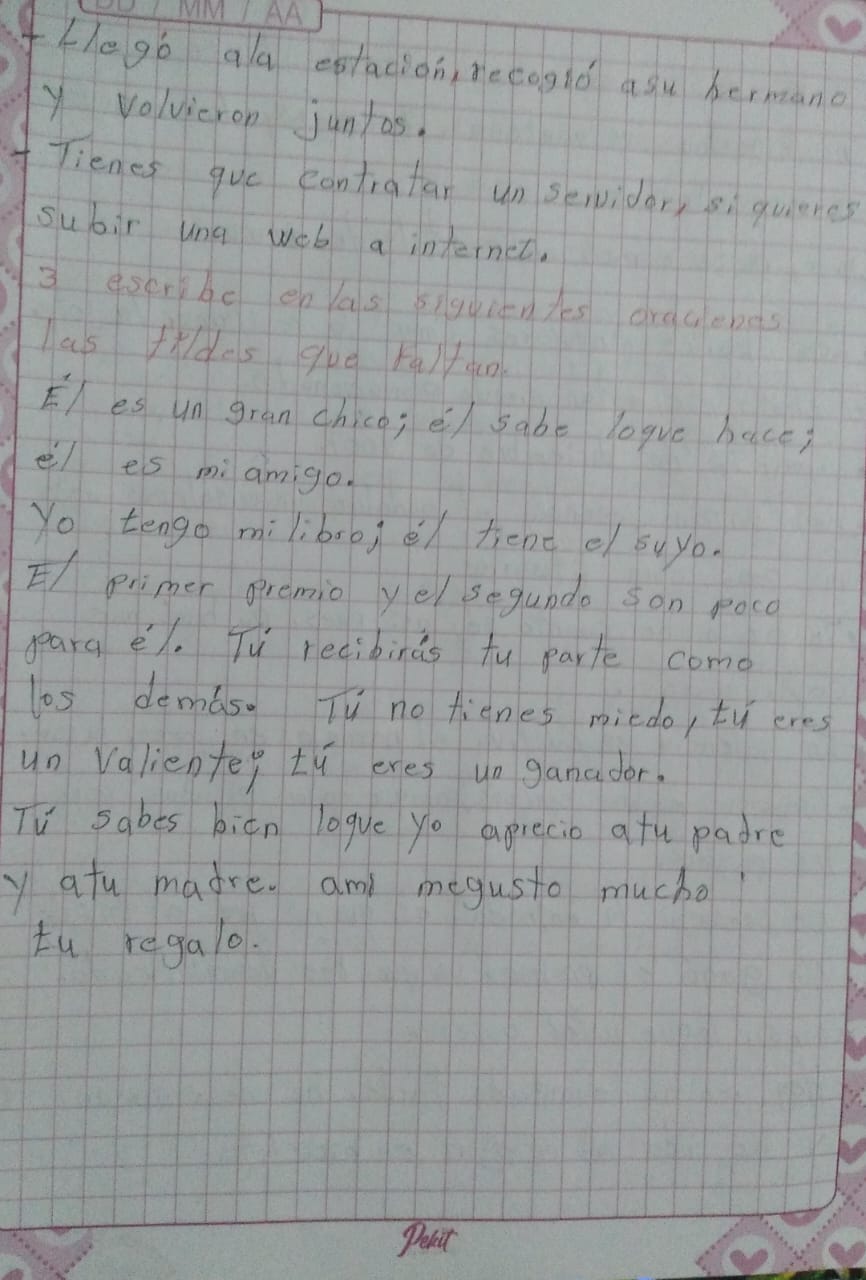 DD / MM / AA
- Llegó ala estación, recogió asu hermano
y volvieron juntos.
- Tienes que contratar un servidor, si quieres
subir una web a internet.
3 escribe en las siguientes oraciones
las tildes que faltan.
Él es un gran chico; él sabe loque hace;
él es mi amigo.
Yo tengo mi libro; él tiene el suyo.
El primer premio y el segundo son poco
para él. Tú recibirás tu parte como
los demás. Tú no tienes miedo, tú eres
un valiente; tú eres un ganador.
Tú sabes bien loque yo aprecio atu padre
y atu madre. ami megusto mucho
tu regalo.
Pekit